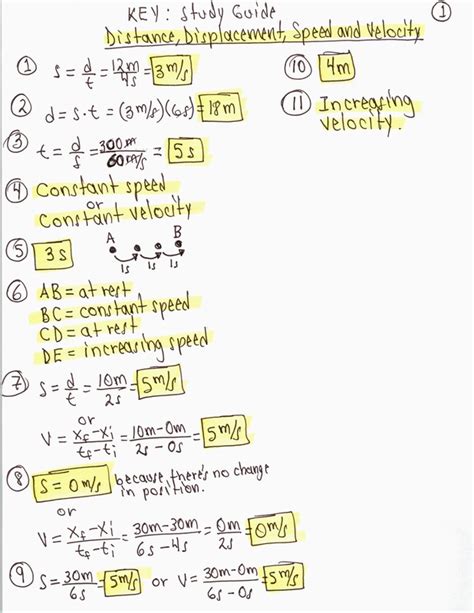 KEY: Study Guide
Distance, Displacement, Speed and Velocity
①
① s = d/t = 12m/4s = 3 m/s
② d = s·t = (3 m/s)(6s) = 18m
③ t = d/s = 300 km/60 km/s = 5s
④ Constant speed
or
Constant velocity
⑤ 3s
A B
1s 1s 1s
⑥ AB = at rest
BC = constant speed
CD = at rest
DE = increasing speed
⑦ s = d/t = 10m/2s = 5 m/s
or
V = xf-xi/tf-ti = 10m-0m/2s-0s = 5 m/s
⑧ s = 0 m/s because there's no change
in position.
or
V = xf-xi/tf-ti = 30m-30m/6s-4s = 0m/2s = 0 m/s
⑨ s = 30m/6s = 5 m/s or V = 30m-0m/6s-0s = 5 m/s
⑩ 4m
⑪ Increasing
velocity.